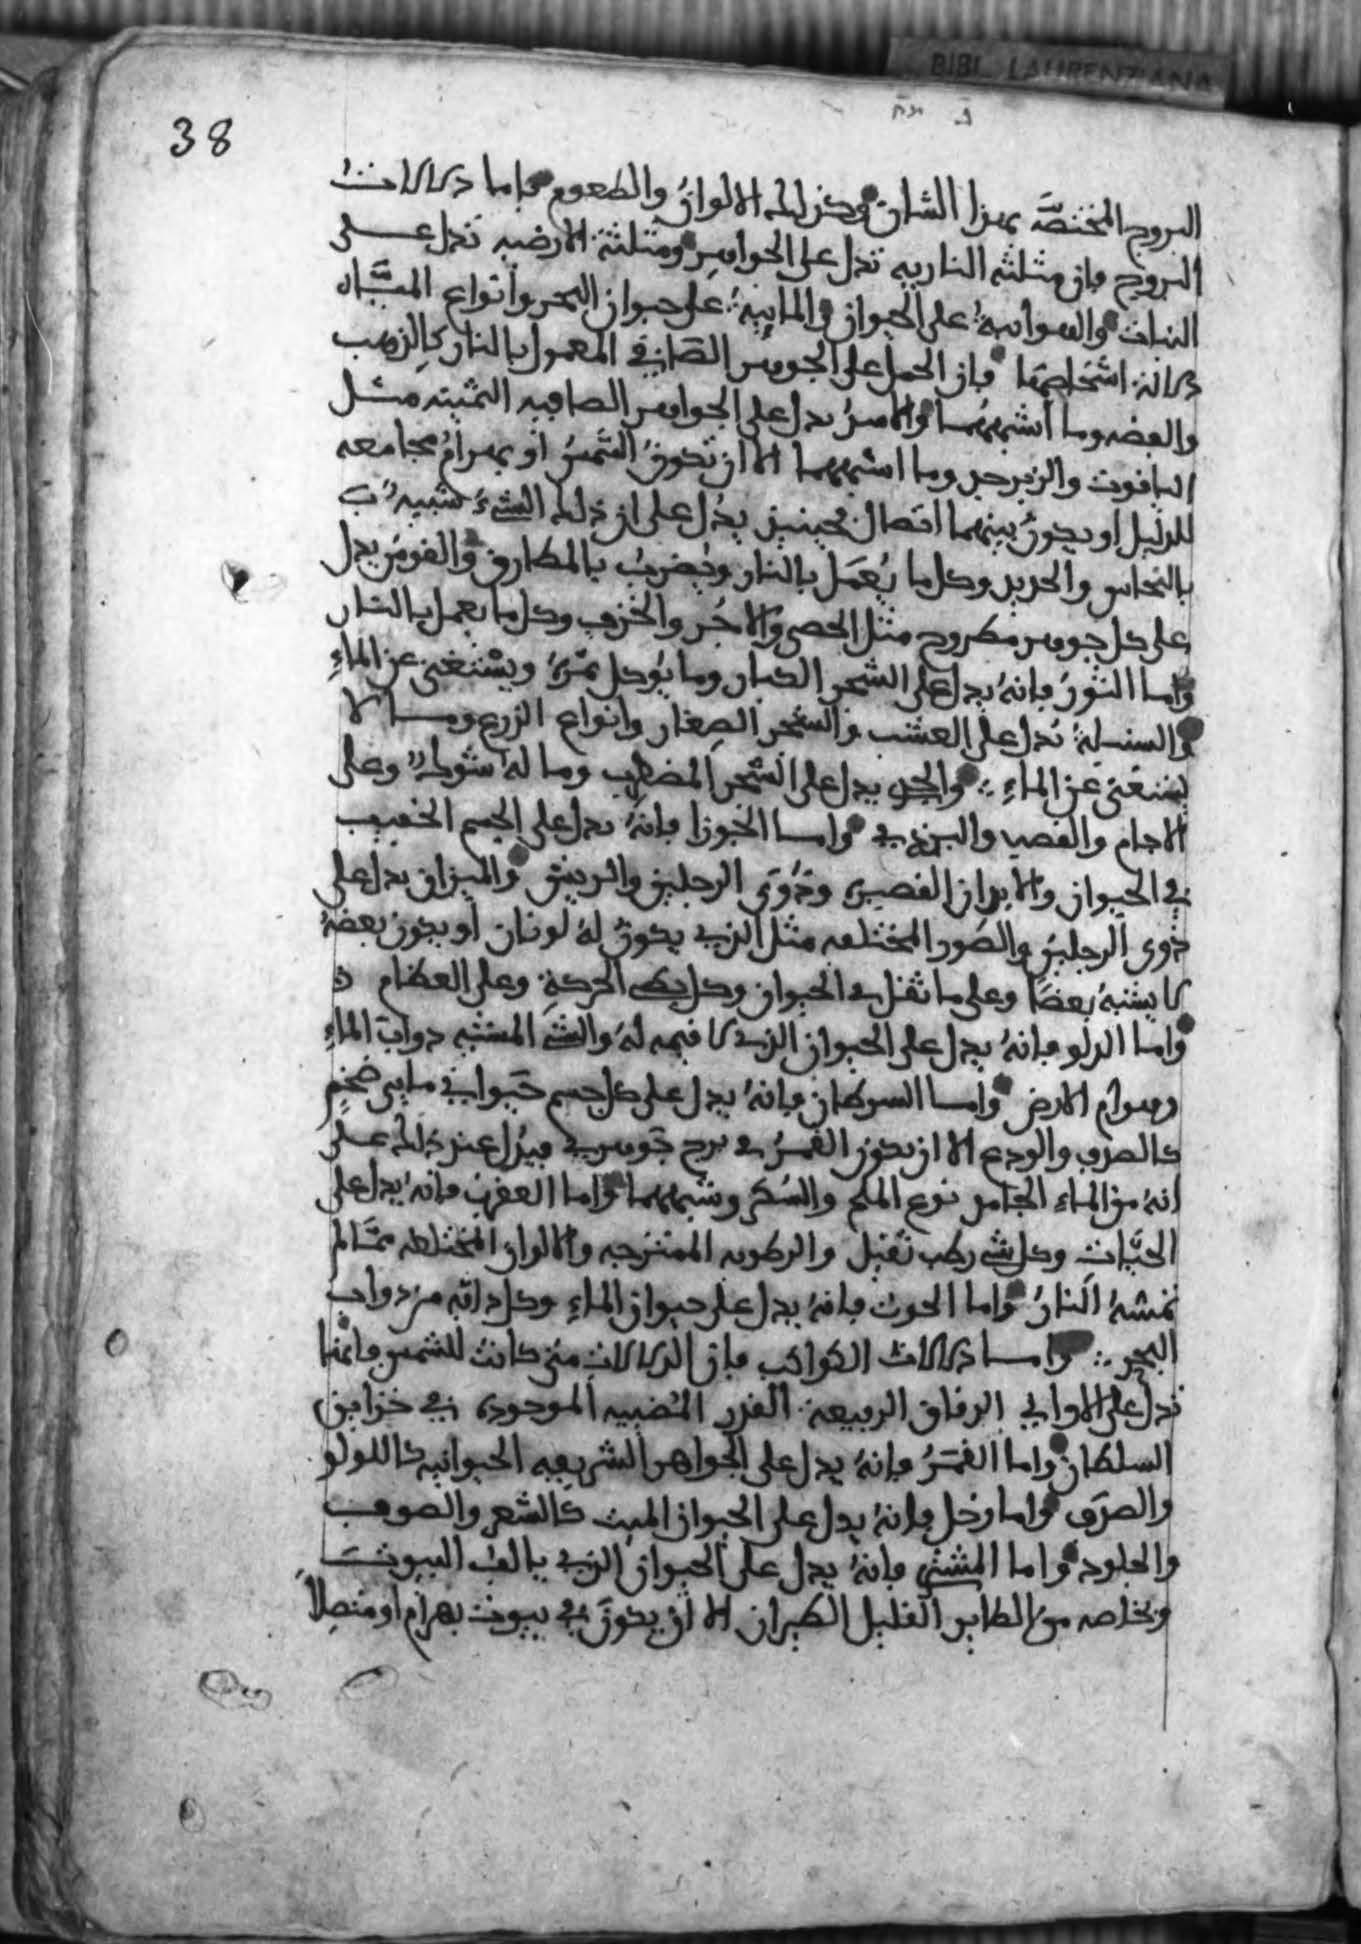 BIBL. LAURENZIANA
38
البروج المختصَّة بهذا الشان وكذلك الالوانُ والطعوم فاما دلالات
البروج فان مثلثه الناريه تدل على الجواهر ومثلثة الارضيه تدل على
النبات والهوائيهُ على الحيوان والمائيهُ على حيوان البحر وانواع المياه
دلالة اشخاصها فان الحمل على الجوهر الصافي المعمول بالنار كالذهب
والفضه وما أشبههما والاسدُ يدل على الجواهر الصافيه الثمينه مثل
الياقوت والزبرجد وما اشبههما الا ان تكونَ الشمسُ او بهرامُ مجامعه
للدليل او يكونُ بينهما اتصال فحينيذ يدُل على ان ذلك الشيءَ شبيهٌ
بالنحاس والحديد وكل ما يُعمَل بالنار ويُضربُ بالمطارق والقوسُ يدل
على كل جوهر مطروح مثل الحصى والاجُر والخزف وكل ما يعمل بالنار
واما الثورُ فانهُ يدل على الشجر الكبار وما يُوكل ثمرهُ ويستغنى عن الماءِ
والسنبلةُ تدل على العشب والشجر الصِغار وانواع الزرع وما لا
يستغنى عن الماءِ والجدي يدل على الشجر وما لهُ شوكٌ وعلى
الاجام والقصب واما الجوزا فانهُ يدل على الجسم الخفيف
في الحيوان والابدان القصيره وذَوي الرجلين والريش والميزان يدل على
ذوي الرجلين والصور المختلفه مثل الذي يكونُ لهُ لونان او يكون بعضهُ
لا يشبهُ بعضًا وعلى ما ثقل في الحيوان وكل بطى الحركةِ وعلى العظام
واما الدلو فانهُ يدل على الحيوان الذي لا قيمه لهُ والشي المشبه دواب الماءِ
وهوام الارض واما السرطان فانهُ يدل على كل جسم حَيواني مايي ضخمٍ
كالصدف والودع الا ان يكون القمرُ في برج جوهري فيدُل عند ذلك على
انهُ من الماءِ الجامد نوع الملح والسُكر وشبههما واما العقرب فانهُ يدل على
الحيّات وكل شي رطب ثقيل والرطوبه الممتزجه والالوان المختلطه ممّا لم
تمسّهُ النارُ واما الحوت فانهُ يدل على حيوان الماءِ وكل دابّه من دواب
البحر واما دلالات الكواكب فان الدلالات متى كانت للشمس فانها
تدل على الاواني الرقاق الرفيعة القدر المُضييه الموجوده في خزاين
السلطان واما القمَرُ فانهُ يدل على الجواهر الشريفه الحيوانيه كاللولو
والصدَف واما زحل فانهُ يدل على الحيوان الميت كالشعر والصوف
والجلود واما المشتري فانهُ يدل على الحيوان الذي يالف البيوت
وبخاصه من الطاير القليل الطيران الا ان يكونَ في بيوت بهرام او متصِلاً